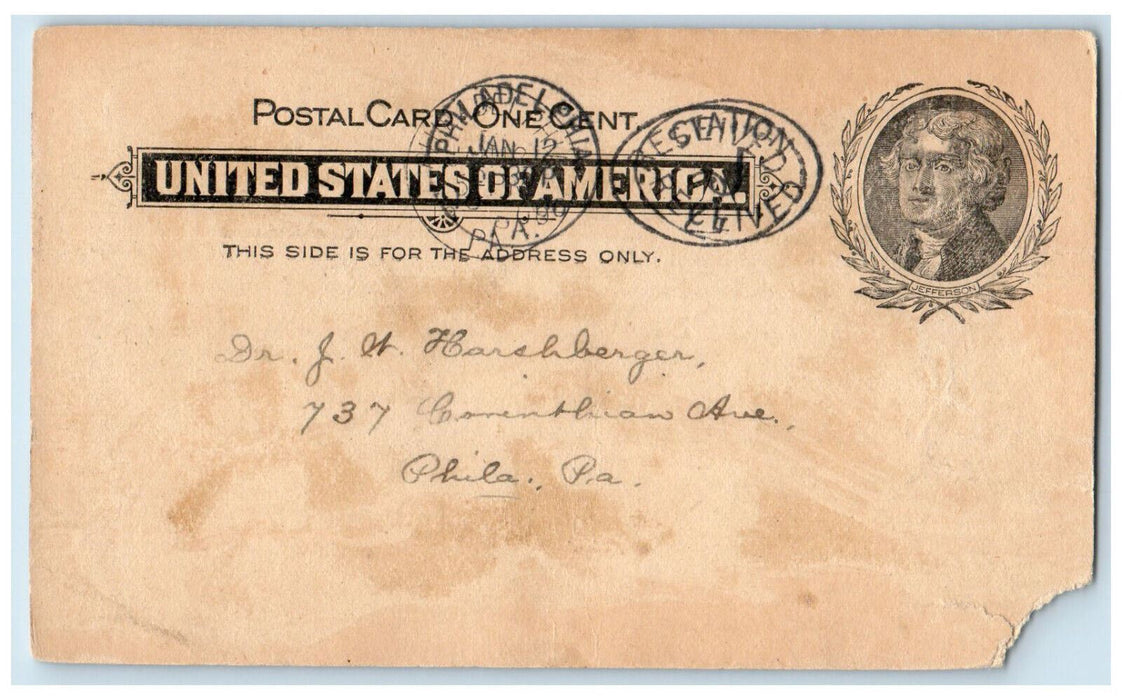 POSTAL CARD - ONE CENT.
UNITED STATES OF AMERICA.
THIS SIDE IS FOR THE ADDRESS ONLY.
PHILADELPHIA
JAN 12
PA.
STATION
RECEIVED
JEFFERSON
Dr. J. W. Harshberger,
737 Corinthian Ave.,
Phila., Pa.